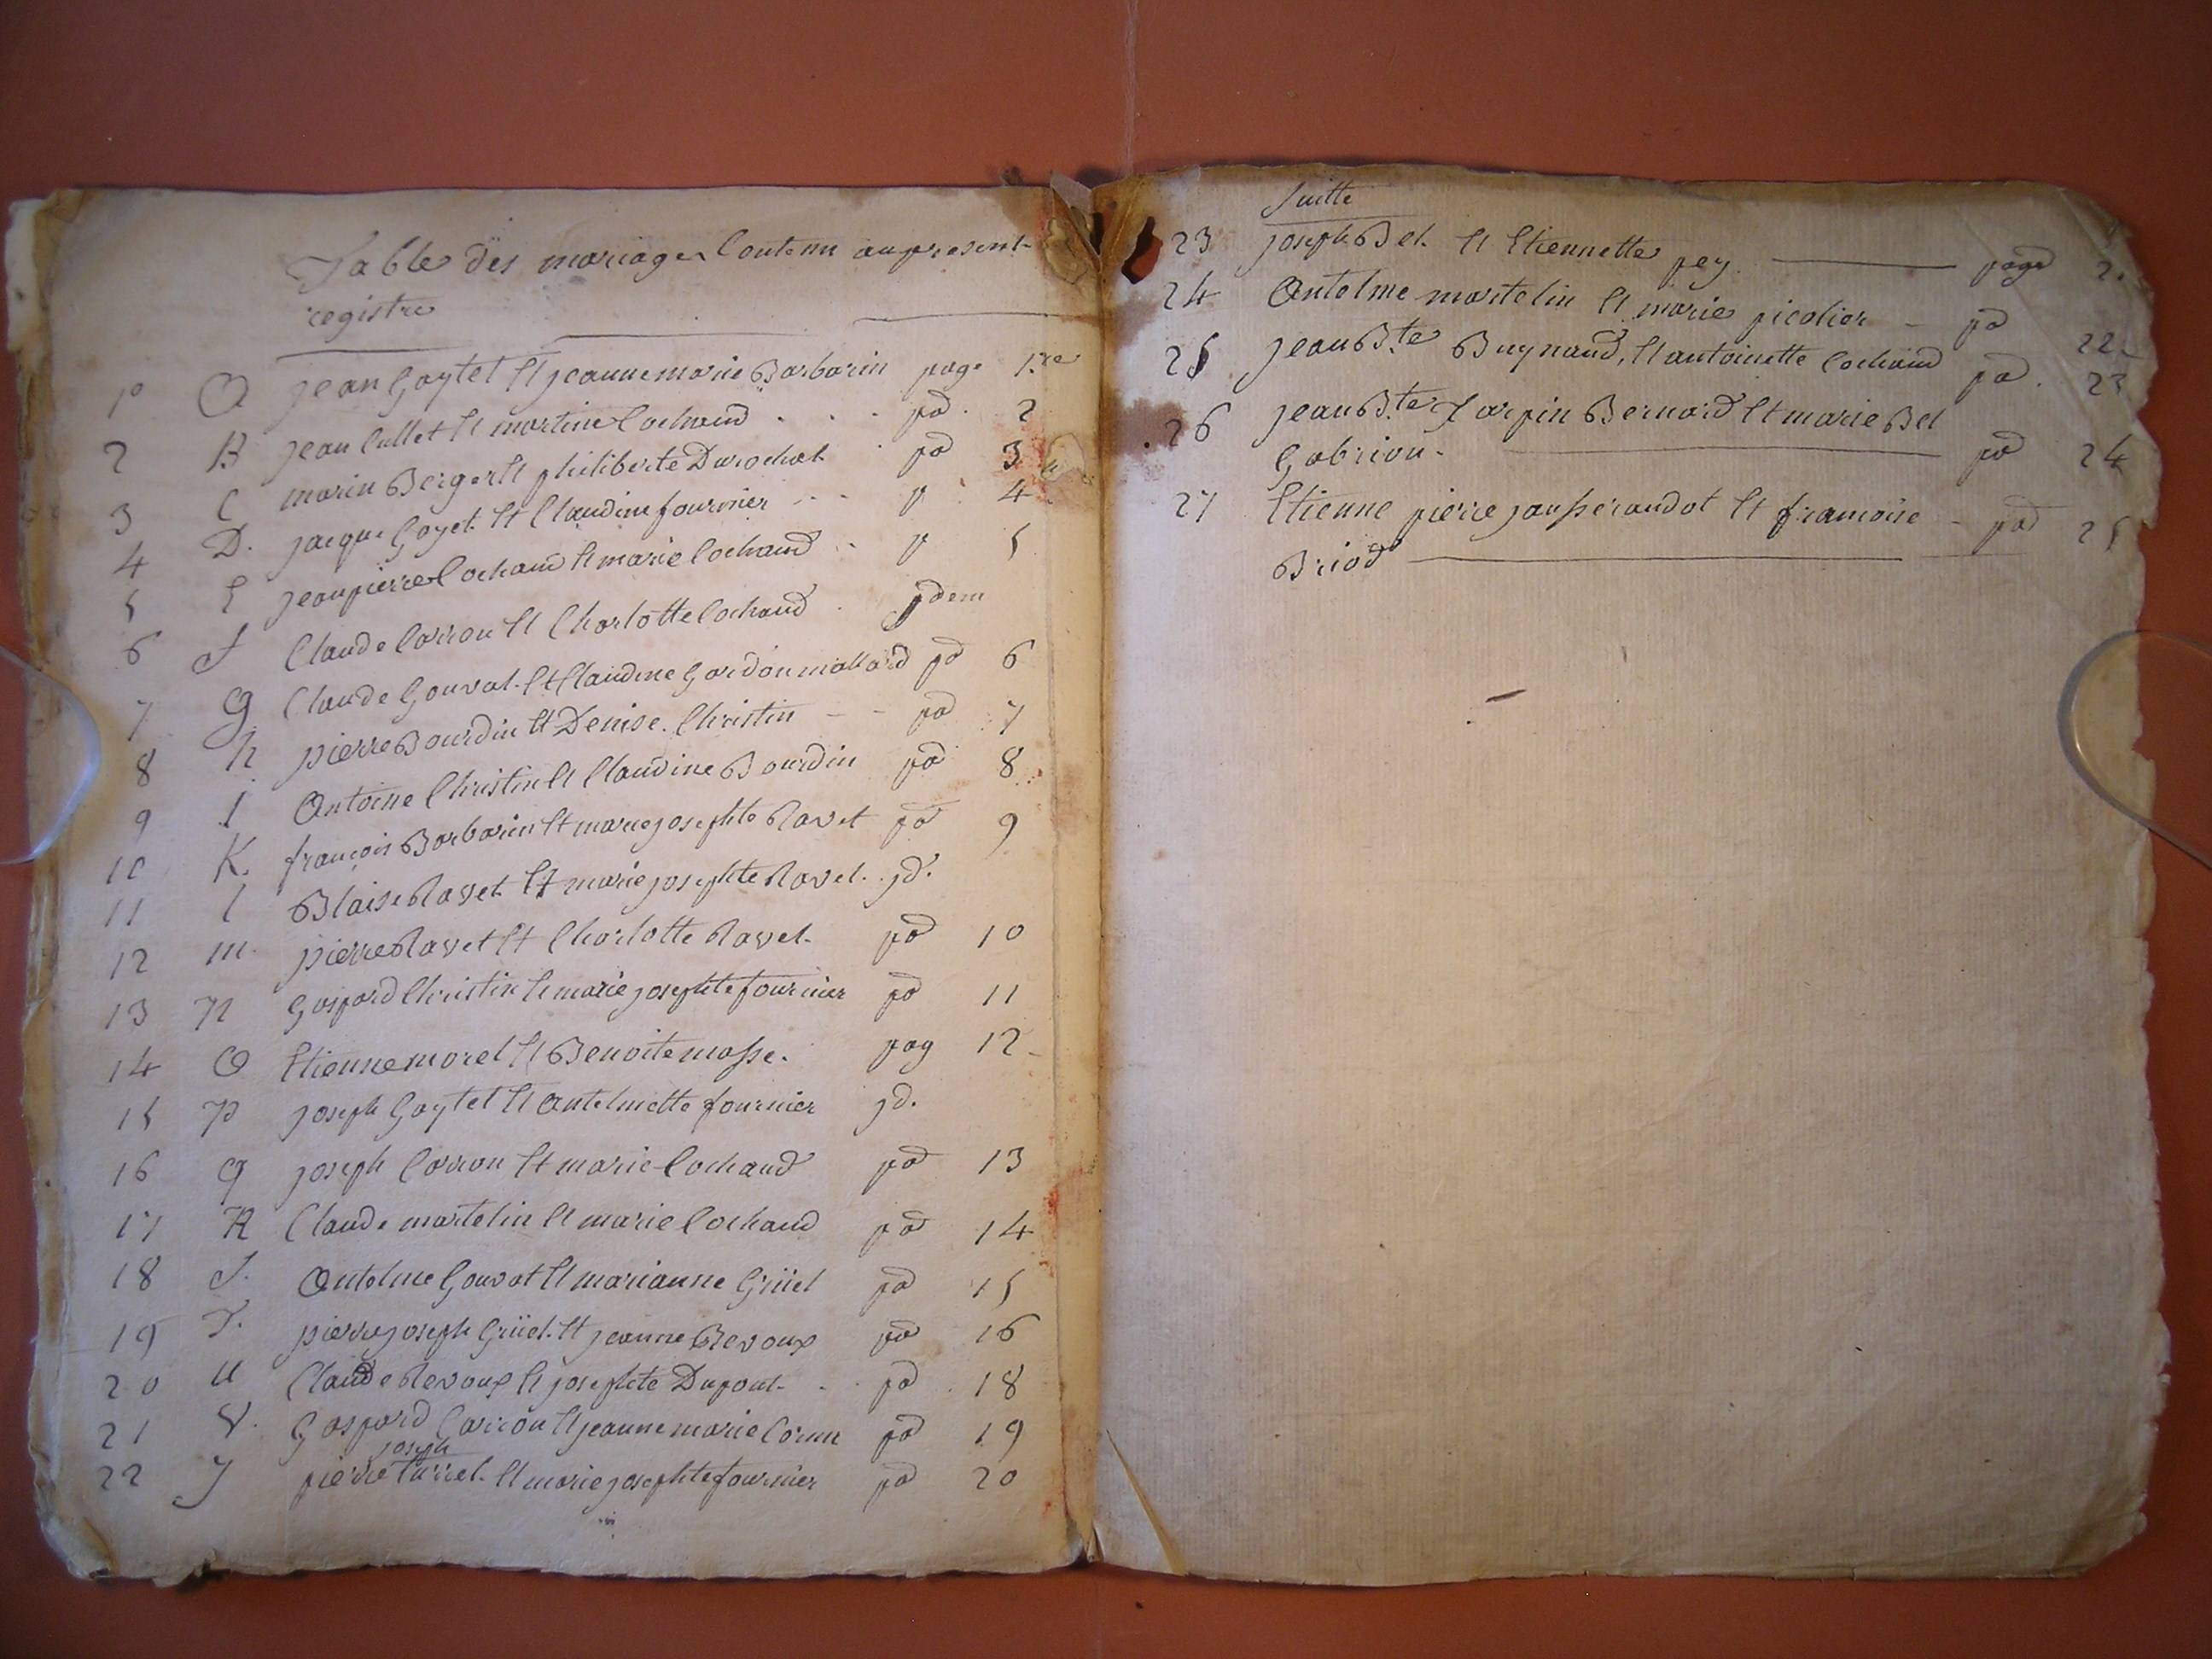 Table des mariages Contenu au present
registre
1º A jean Goytet Et jeanne marie Barbarin page 1.re
2 B jean Cullet Et martine Cochaud . . . pa. 2
3 C marin Berger Et philiberte Durochat . pa 3
4 D. jacque Goyet Et Claudine fournier . . . p. 4
5 E jean pierre Cochaud Et marie Cochaud . . p 5
6 f Claude Carron Et Charlotte Cochaud . jdem
7 g Claude Gouvat Et Claudine Gardon mallard pa 6
8 h pierre Bourdin Et Denise Christin - - pa 7
9 I Antoine Christin Et Claudine Bourdin pa 8
10 K. francois Barbarin Et marie josephte Ravet pa 9
11 l Blaise Ravet Et marie josephte Ravet . jd.
12 m. pierre Ravet Et Charlotte Ravet pa 10
13 N Gaspard Christin Et marie josephte fournier pa 11
14 O Etienne morel Et Benoite masse. pag 12
15 P joseph Goytet Et Antelmette fournier jd.
16 q joseph Carron Et marie Cochaud pa 13
17 R Claude martelin Et marie Cochaud pa 14
18 S. Antelme Gouvat Et marianne Grüel pa 15
19 T. pierre joseph Grüel Et jeanne Revoux pa 16
20 U Claude Revoux Et josephte Dupont . . pa . 18
21 V. Gaspard Carron Et jeanne marie Cornu pa 19
joseph
22 J pierre Curret Et marie josephte fournier pa 20
Suitte
23 joseph Bel Et Etiennette pey. page 2
24 Antelme martelin Et marie picolier - pa 22
25 jean B.te Buynand, Et antoinette Cochaud pa. 23
26 jean B.te Tarpin Bernard Et marie Bel
Gabrion. pa 24
27 Etienne pierre jousserandot Et francoise - pa 25
Briod